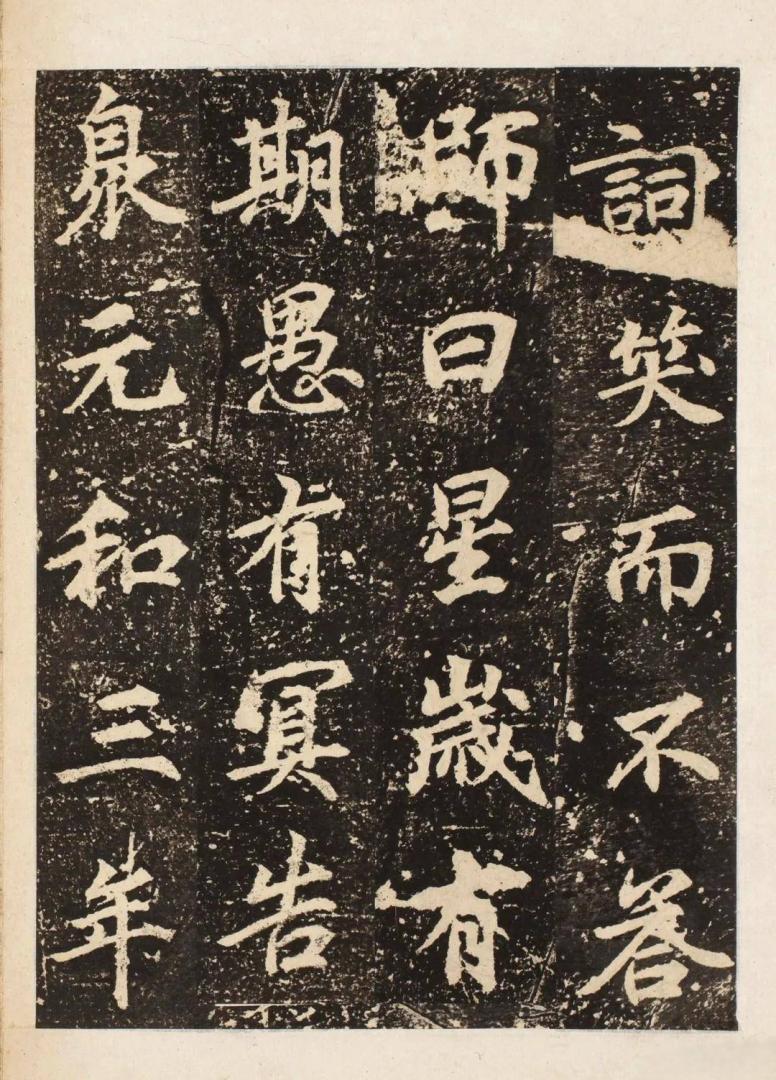 詞笑而不答
師曰星歲有
期愚有冥告
泉元和三年